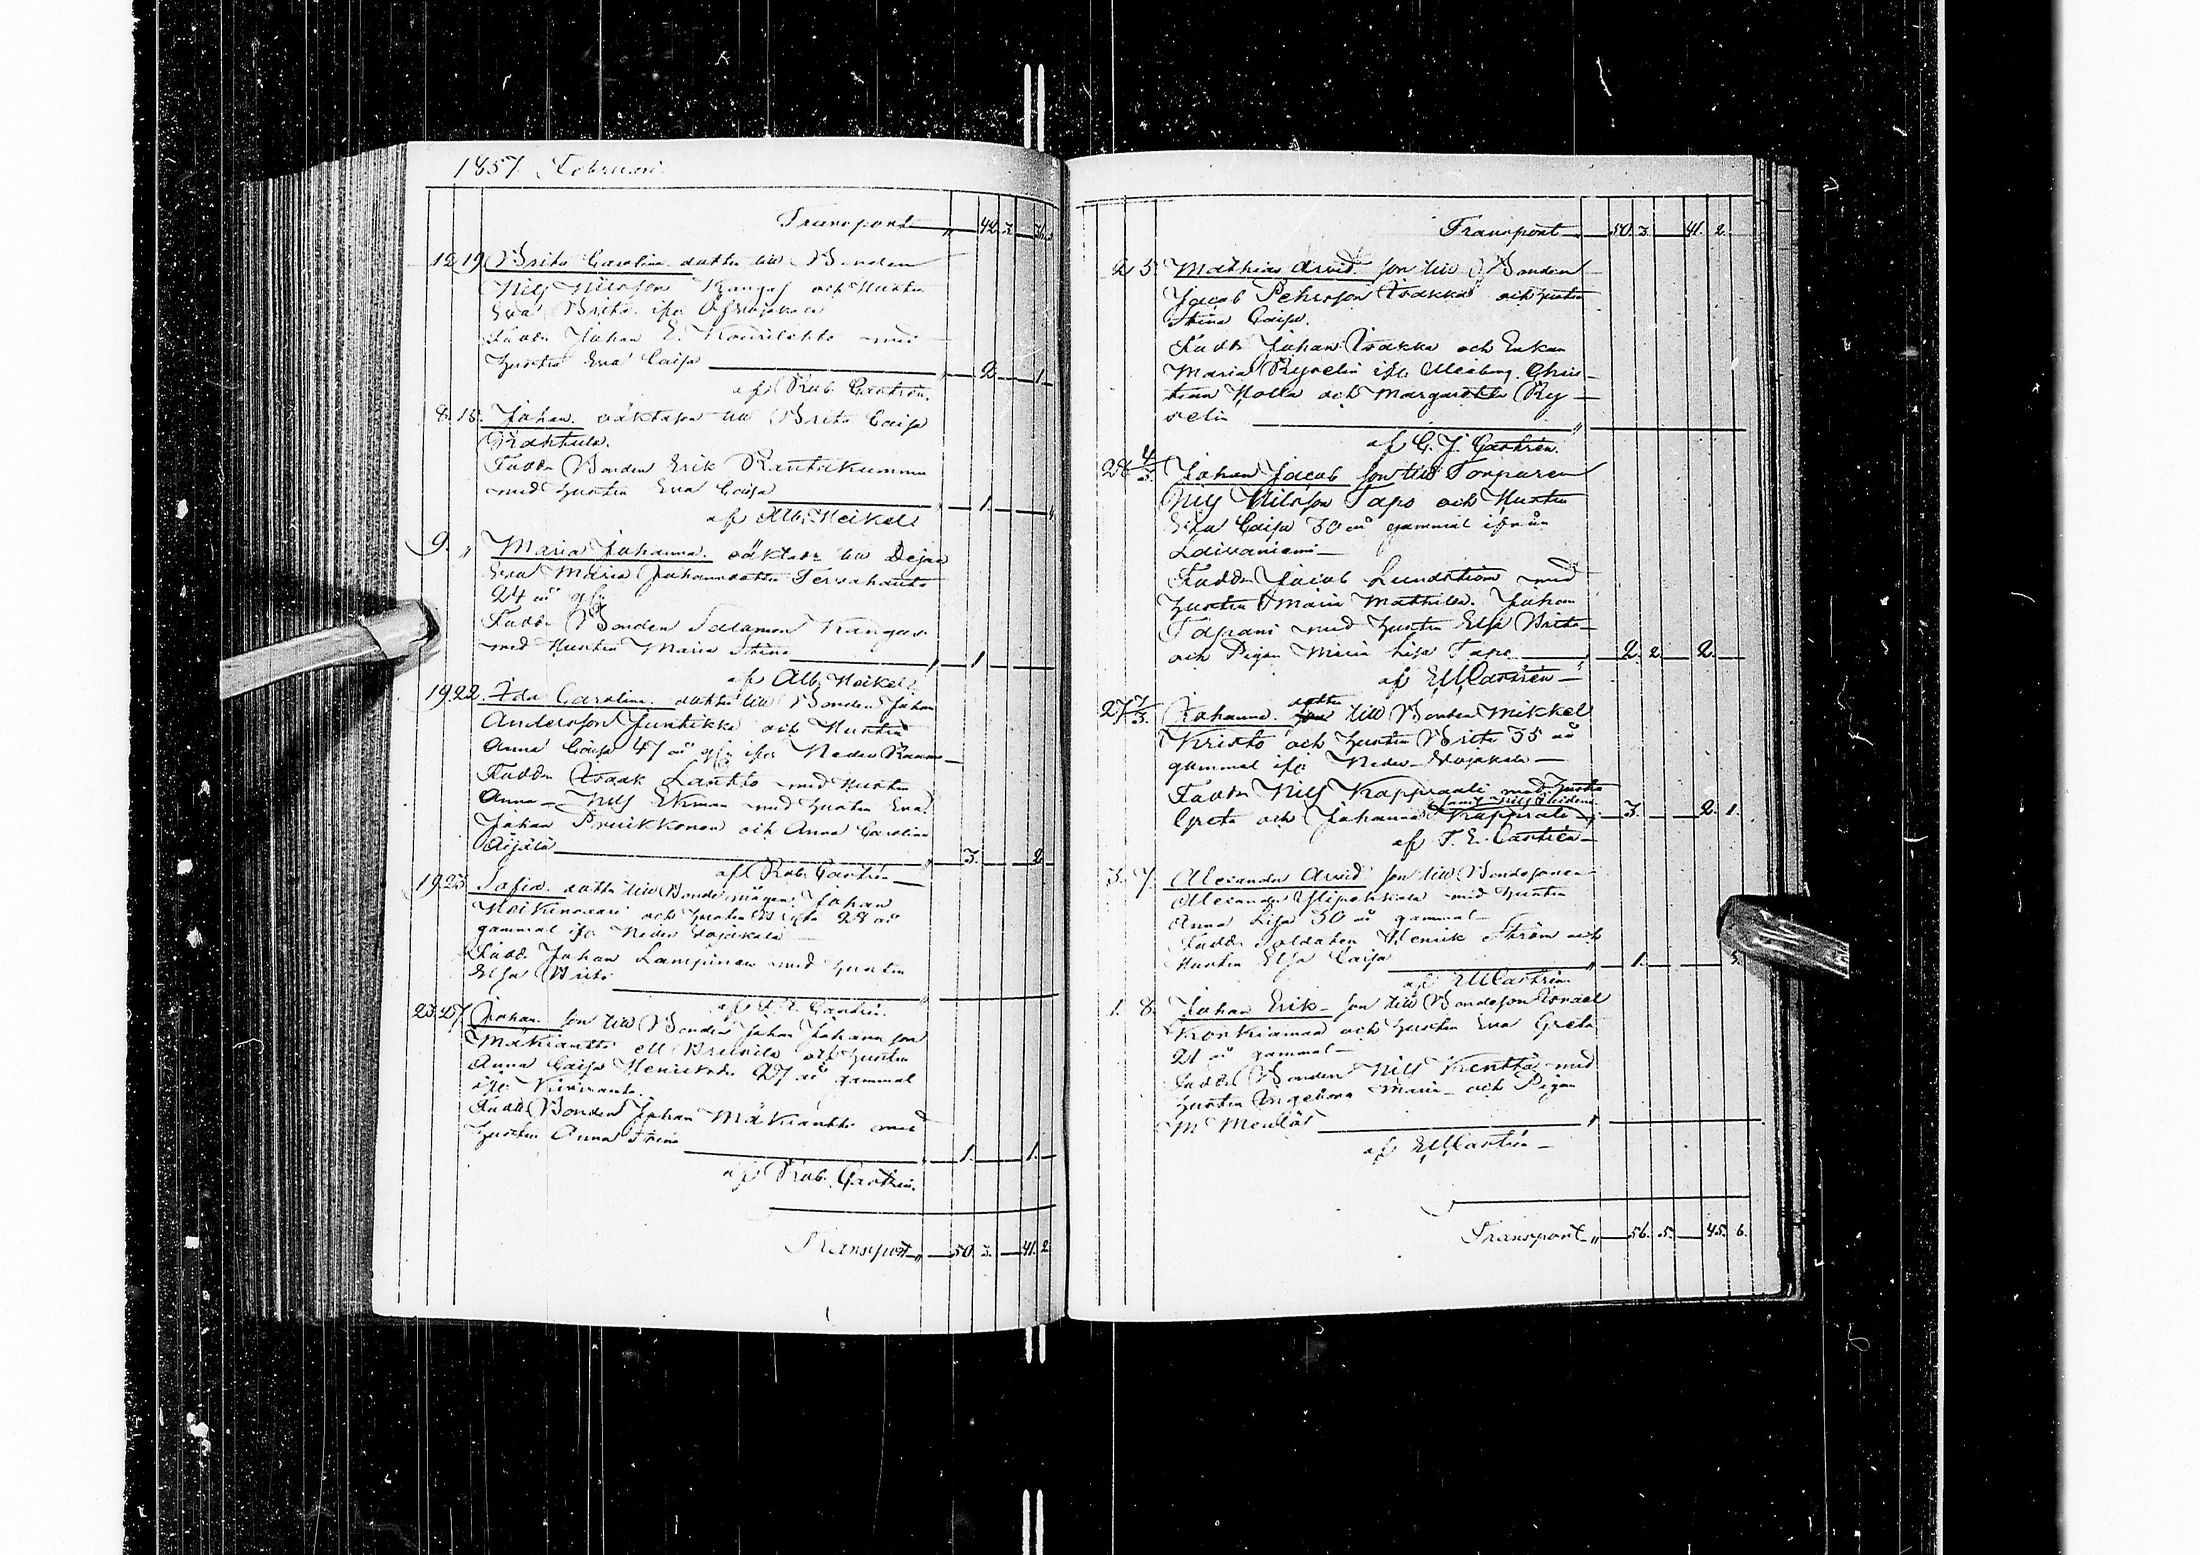 1857. Februari
Transport " 42. 3. 31.
12 19 Brita Carolina dotter till Bonden
Nils Nilsson Kangas och Hustru
Eva Brita ifr.
Fadd: Johan E. Kourilehto med
Hustru Eva Caisa " 2. 1.
af Rob. Castrén.
8. 15. Johan. oäkta son till Brita Caisa
Fadd: Bonden Erik Rautakumma
med Hustru Eva Caisa " 1. "
af Alb. Heikel
9. " Maria Johanna. oäkta dr till
Eva Maria Johansdotter Tervahauta
24 år g.
Fadd: Bonden Salomon Kangas
med Hustru Maria Stina " 1
af Alb. Heikel.
19 22. Ida Carolina. dotter till Bonden Johan
Andersson Juntikka och Hustru
Anna Caisa 47 år g. ifr Neder
Fadd: Isaak Lantto med Hustru
Anna - Nils Ekman med Hustru Eva.
Johan Pruikkonen och Anna Carolina
Äijälä " 3. 2
af Rob. Castrén
19 23. Sofia. dotter till Bondemågen Johan
och Hustru Brita 28 år
gammal ifr Neder
Fadd: Johan Lampinen med Hustru
Elsa Brita "
af T. E. Castrén.
23. 27 Johan. son till Bonden Johan Johansson
Mäkiantto och Hustru
Anna Caisa Henriksdr 27 år gammal
ifr Kiviranta.
Fadd: Bonden Johan Mäkiantto med
Hustru Anna Stina " 1. 1.
af Rob. Castrén.
Transport " 50. 3. 41. 2
Transport " 50. 3. 41. 2.
2 5. Mathias Arvid. son till Bonden
Jacob Pehrsson Isakka och Hustru
Stina Caisa.
Fadd: Johan Isakka och Enkan
Maria Ryselin ifr Uleåborg. Chris-
tian Holla och Margaretha Ry-
selin "
af C. J. Castrén.
28 4/3. Johan Jacob son till Torparen
Nils Nilsson Tapo och Hustru
Caisa 30 år gammal ifrån
Laivaniemi
Fadd: Jacob Lundström med
Hustru Maria Mathilda. Johan
Tapani med Hustru Elsa Brita
och Pigan Maria Lisa Tapo " 2. 2. 2.
af E. M. Castrén
27 7/3. Johanna. dotter till Bonden Mikkel
Kristo och Hustru Brita 35 år
gammal ifr Neder
Fadd: Nils Kappraali med Hustru
Greta och Johanna Kappraali " 3. 2. 1.
af T. E. Castrén
3. 7. Alexander Arvid son till Bondesonen
Alexander Ylipahkala med Hustru
Anna Lisa 30 år gammal
Fadd: Soldaten Henrik Ström och
Hustru Elsa Caisa " 1.
af E. M. Castrén
1. 8. Johan Erik - son till Bondeson Israel
Konkiamaa och Hustru Eva Greta
21 år gammal
Fadd: Bonden Nils Kenttä med
Hustru Maria - och Pigan
M "
af E. M. Castrén
Transport " 56. 5. 45. 6.